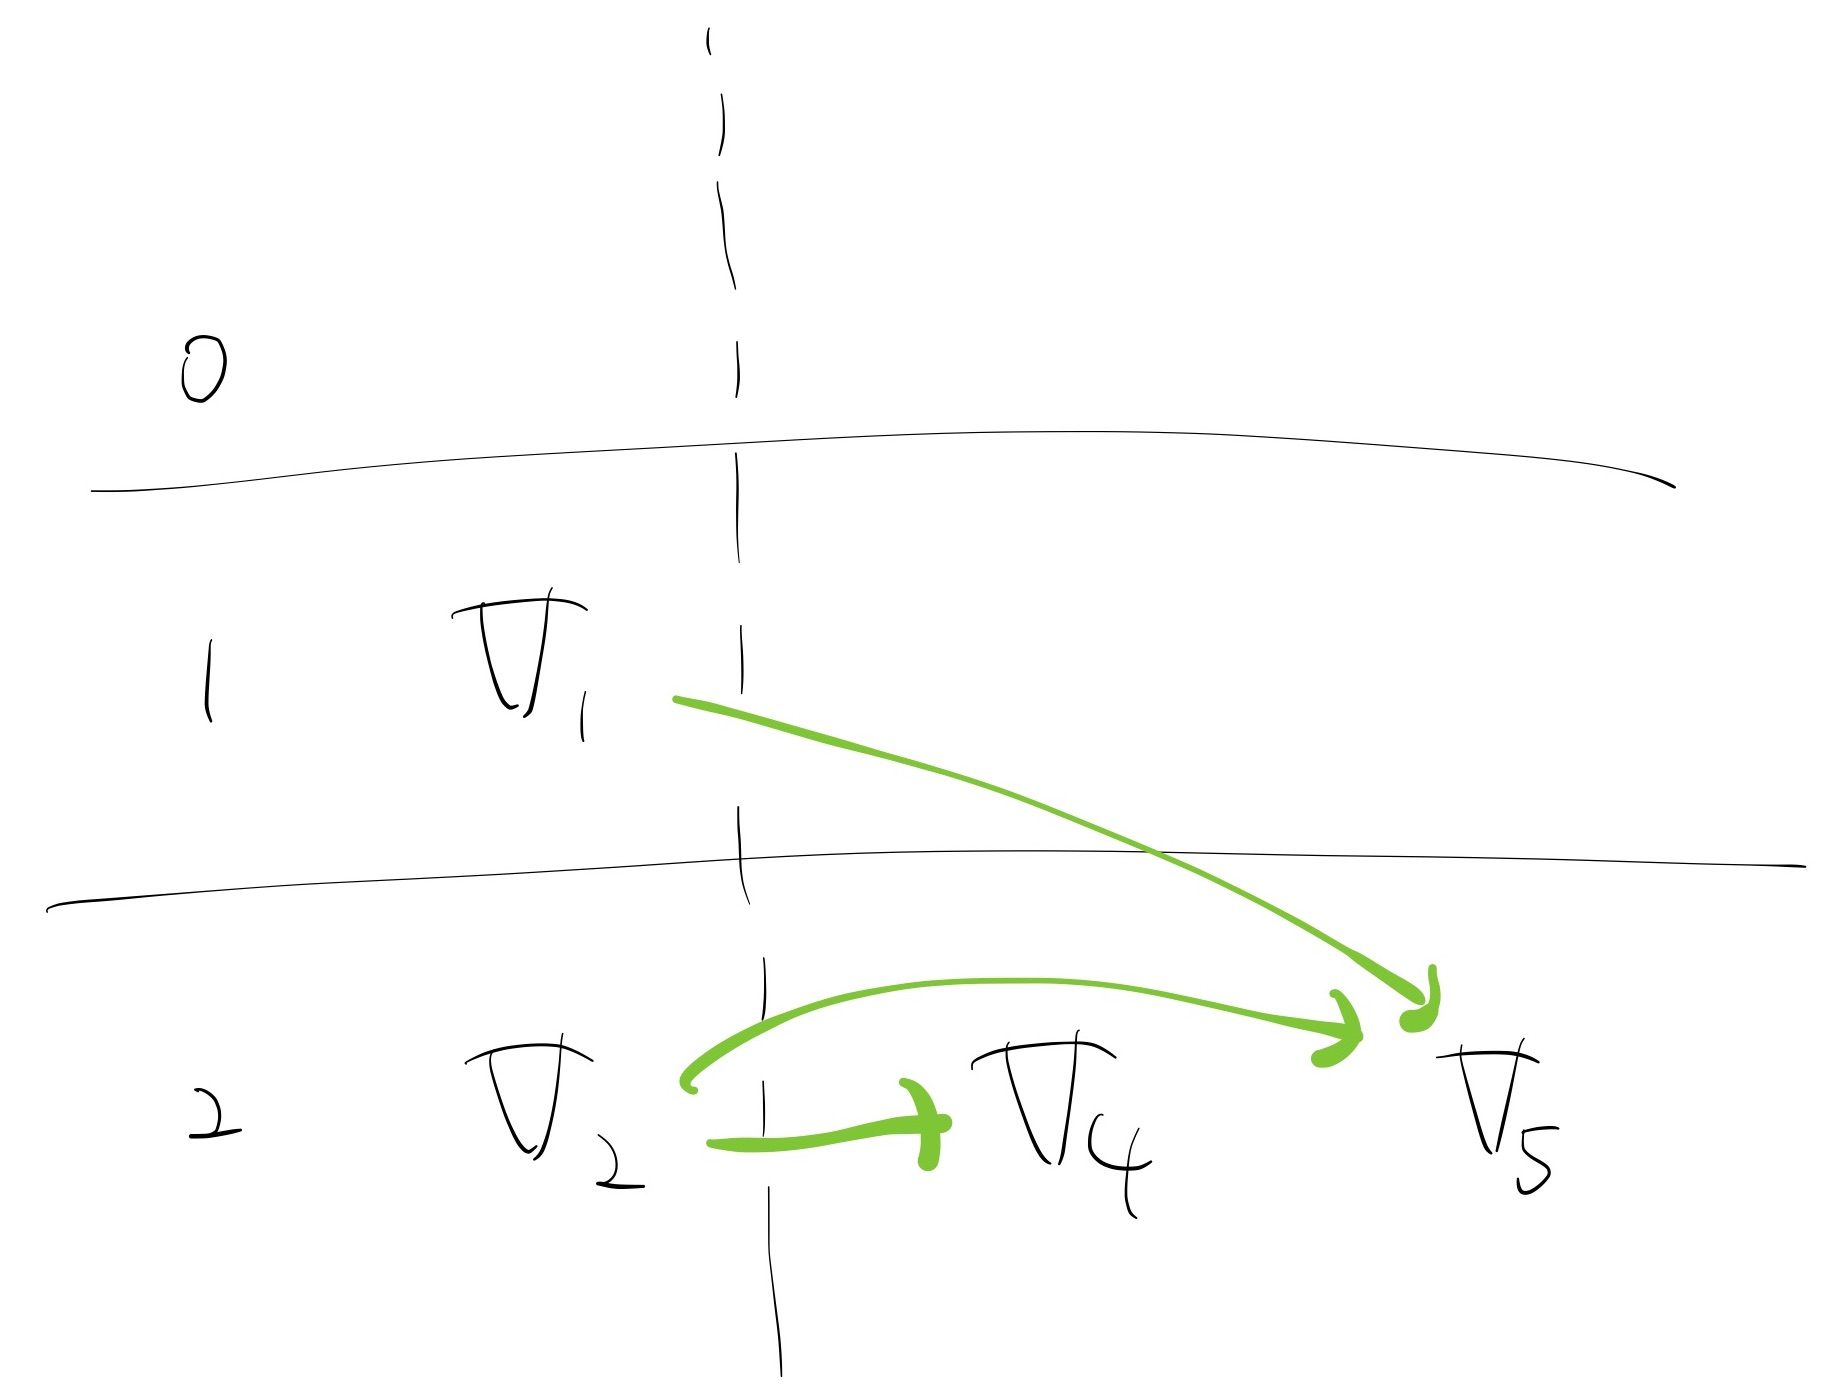 0
1 ∇1
2 ∇2 ∇4 ∇5